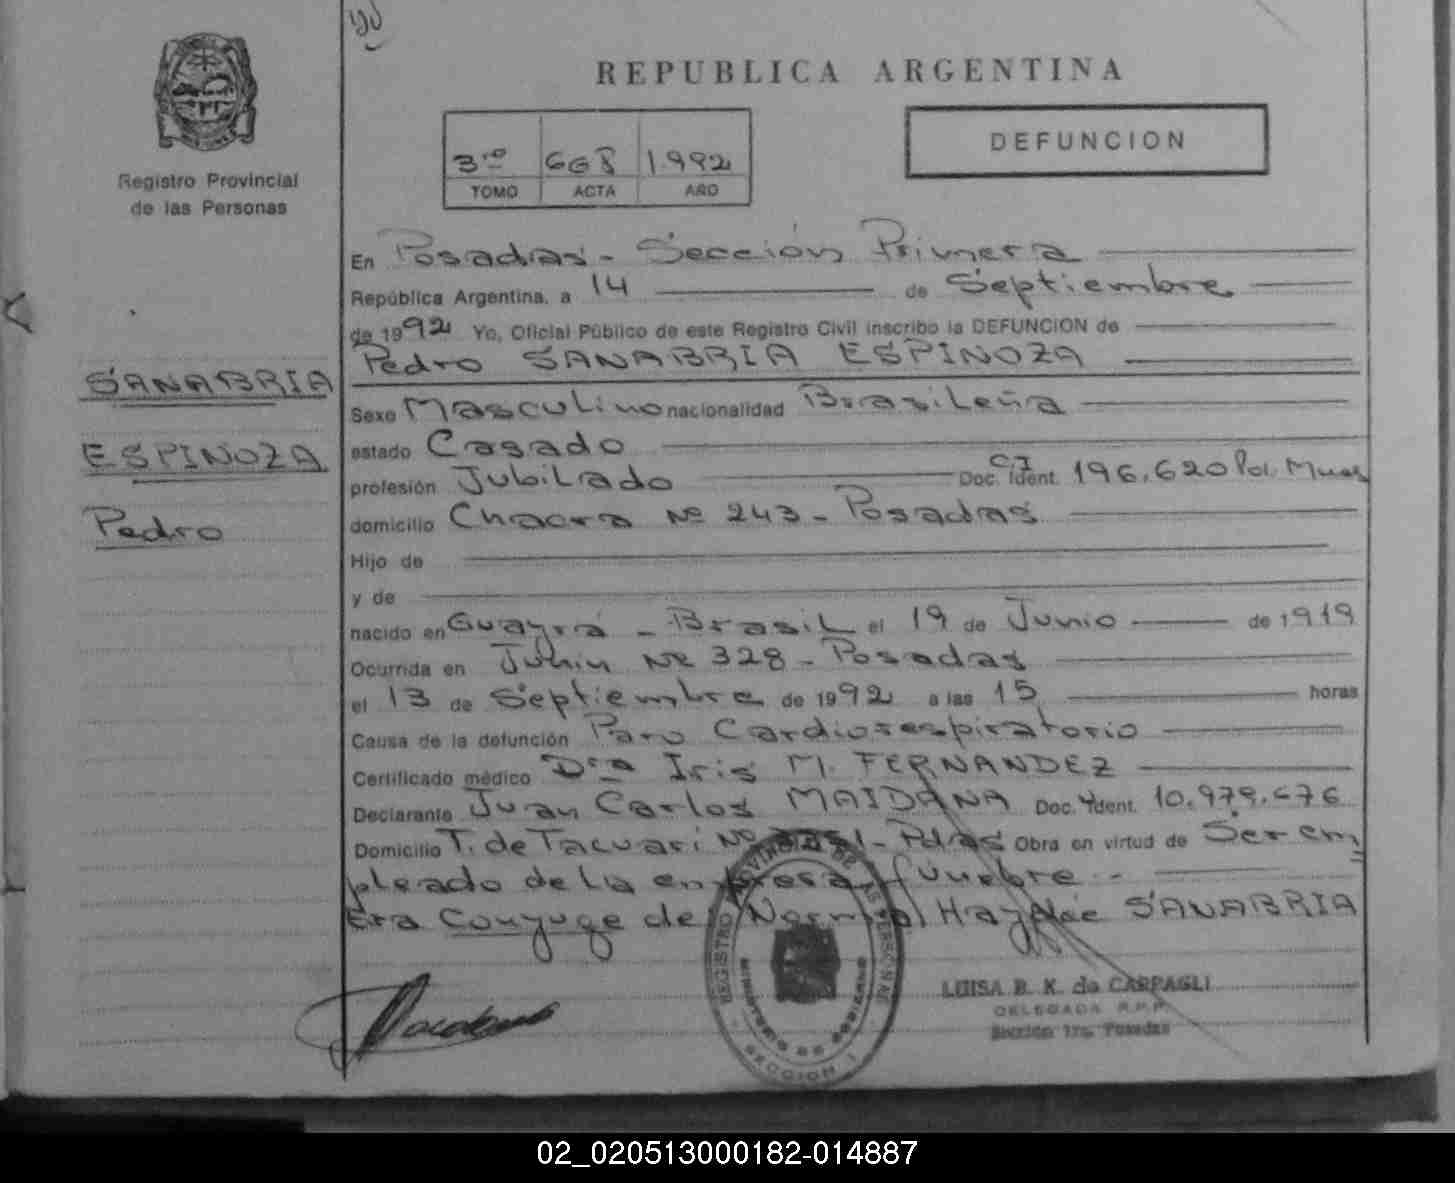 REPUBLICA ARGENTINA
DEFUNCION
3ro 668 1992
TOMO ACTA AÑO
Registro Provincial
de las Personas
En Posadas - Sección Primera
República Argentina, a 14 de Septiembre
de 1992 Yo, Oficial Público de este Registro Civil inscribo la DEFUNCION de
Pedro SANABRIA ESPINOZA
SANABRIA
ESPINOZA
Pedro
Sexo Masculino nacionalidad Brasileña
estado Casado
profesión Jubilado Doc. Ident. CI 196.620 Pol. Mnes
domicilio Chacra Nº 243 - Posadas
Hijo de
y de
nacido en Guayra - Brasil el 19 de Junio de 1919
Ocurrida en Junin Nº 328 - Posadas
el 13 de Septiembre de 1992 a las 15 horas
Causa de la defunción Paro Cardiorespiratorio
Certificado médico Dra Iris M. FERNANDEZ
Declarante Juan Carlos MAIDANA Doc. Ident. 10.979.676
Domicilio T. de Tacuari Nº - Pdas Obra en virtud de Ser em
pleado de la empresa fúnebre.-
Era Conyuge de Norma Haydée SANABRIA
REGISTRO PROVINCIAL DE LAS PERSONAS
MINISTERIO DE GOBIERNO
SECCION 1
LUISA B. K. de CARPAGLI
DELEGADA R.P.P.
Sección 1ra. Posadas
02_020513000182-014887